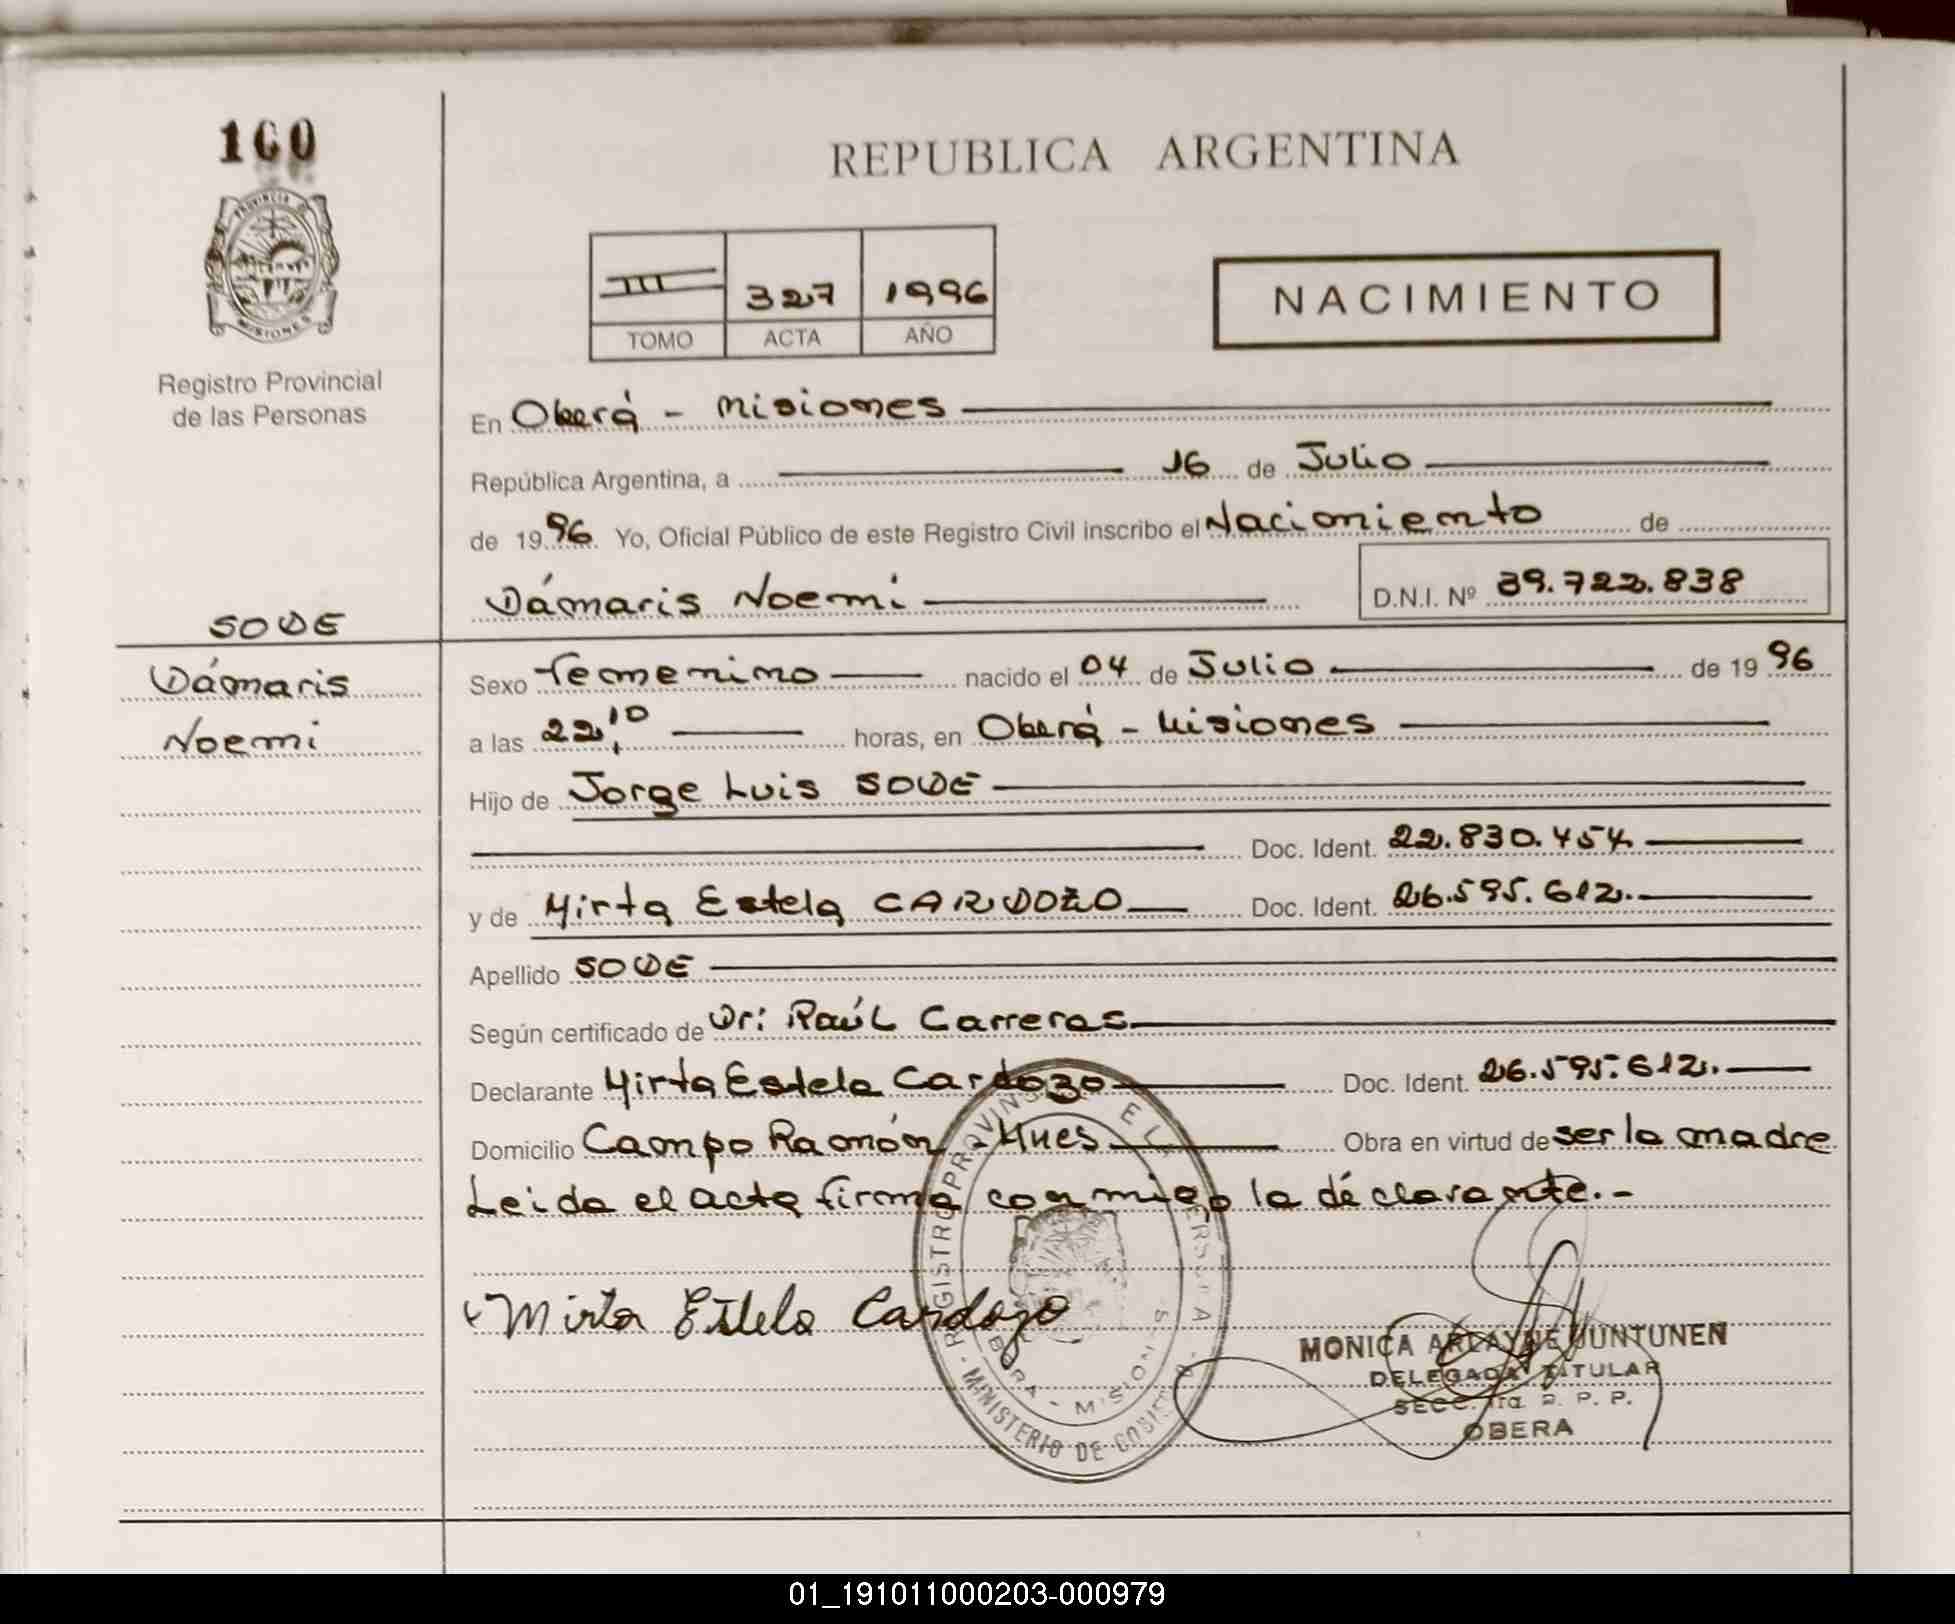 160
REPUBLICA ARGENTINA
PROVINCIA
MISIONES
Registro Provincial
de las Personas
III 327 1996
TOMO ACTA AÑO
NACIMIENTO
En Oberá - Misiones
República Argentina, a 16 de Julio
de 1996. Yo, Oficial Público de este Registro Civil inscribo el Nacimiento de
Dámaris Noemi
D.N.I. Nº 39.722.838
SODE
Dámaris
Noemi
Sexo femenino nacido el 04 de Julio de 1996
a las 22,10 horas, en Oberá - Misiones
Hijo de Jorge Luis SODE
Doc. Ident. 22.830.454
y de Mirta Estela CARDOZO Doc. Ident. 26.595.612.
Apellido SODE
Según certificado de Dr: Raúl Carreras
Declarante Mirta Estela Cardozo Doc. Ident. 26.595.612.
Domicilio Campo Ramón - Mnes Obra en virtud de ser la madre
Leida el acta firma conmigo la declarante.-
Mirta Estela Cardozo
REGISTRO PROVINCIAL
MINISTERIO DE
OBERA - MISIONES
MONICA ARLAYNE JUNTUNEN
DELEGADA TITULAR
SECC. 1ra. R. P. P.
OBERA
01_191011000203-000979